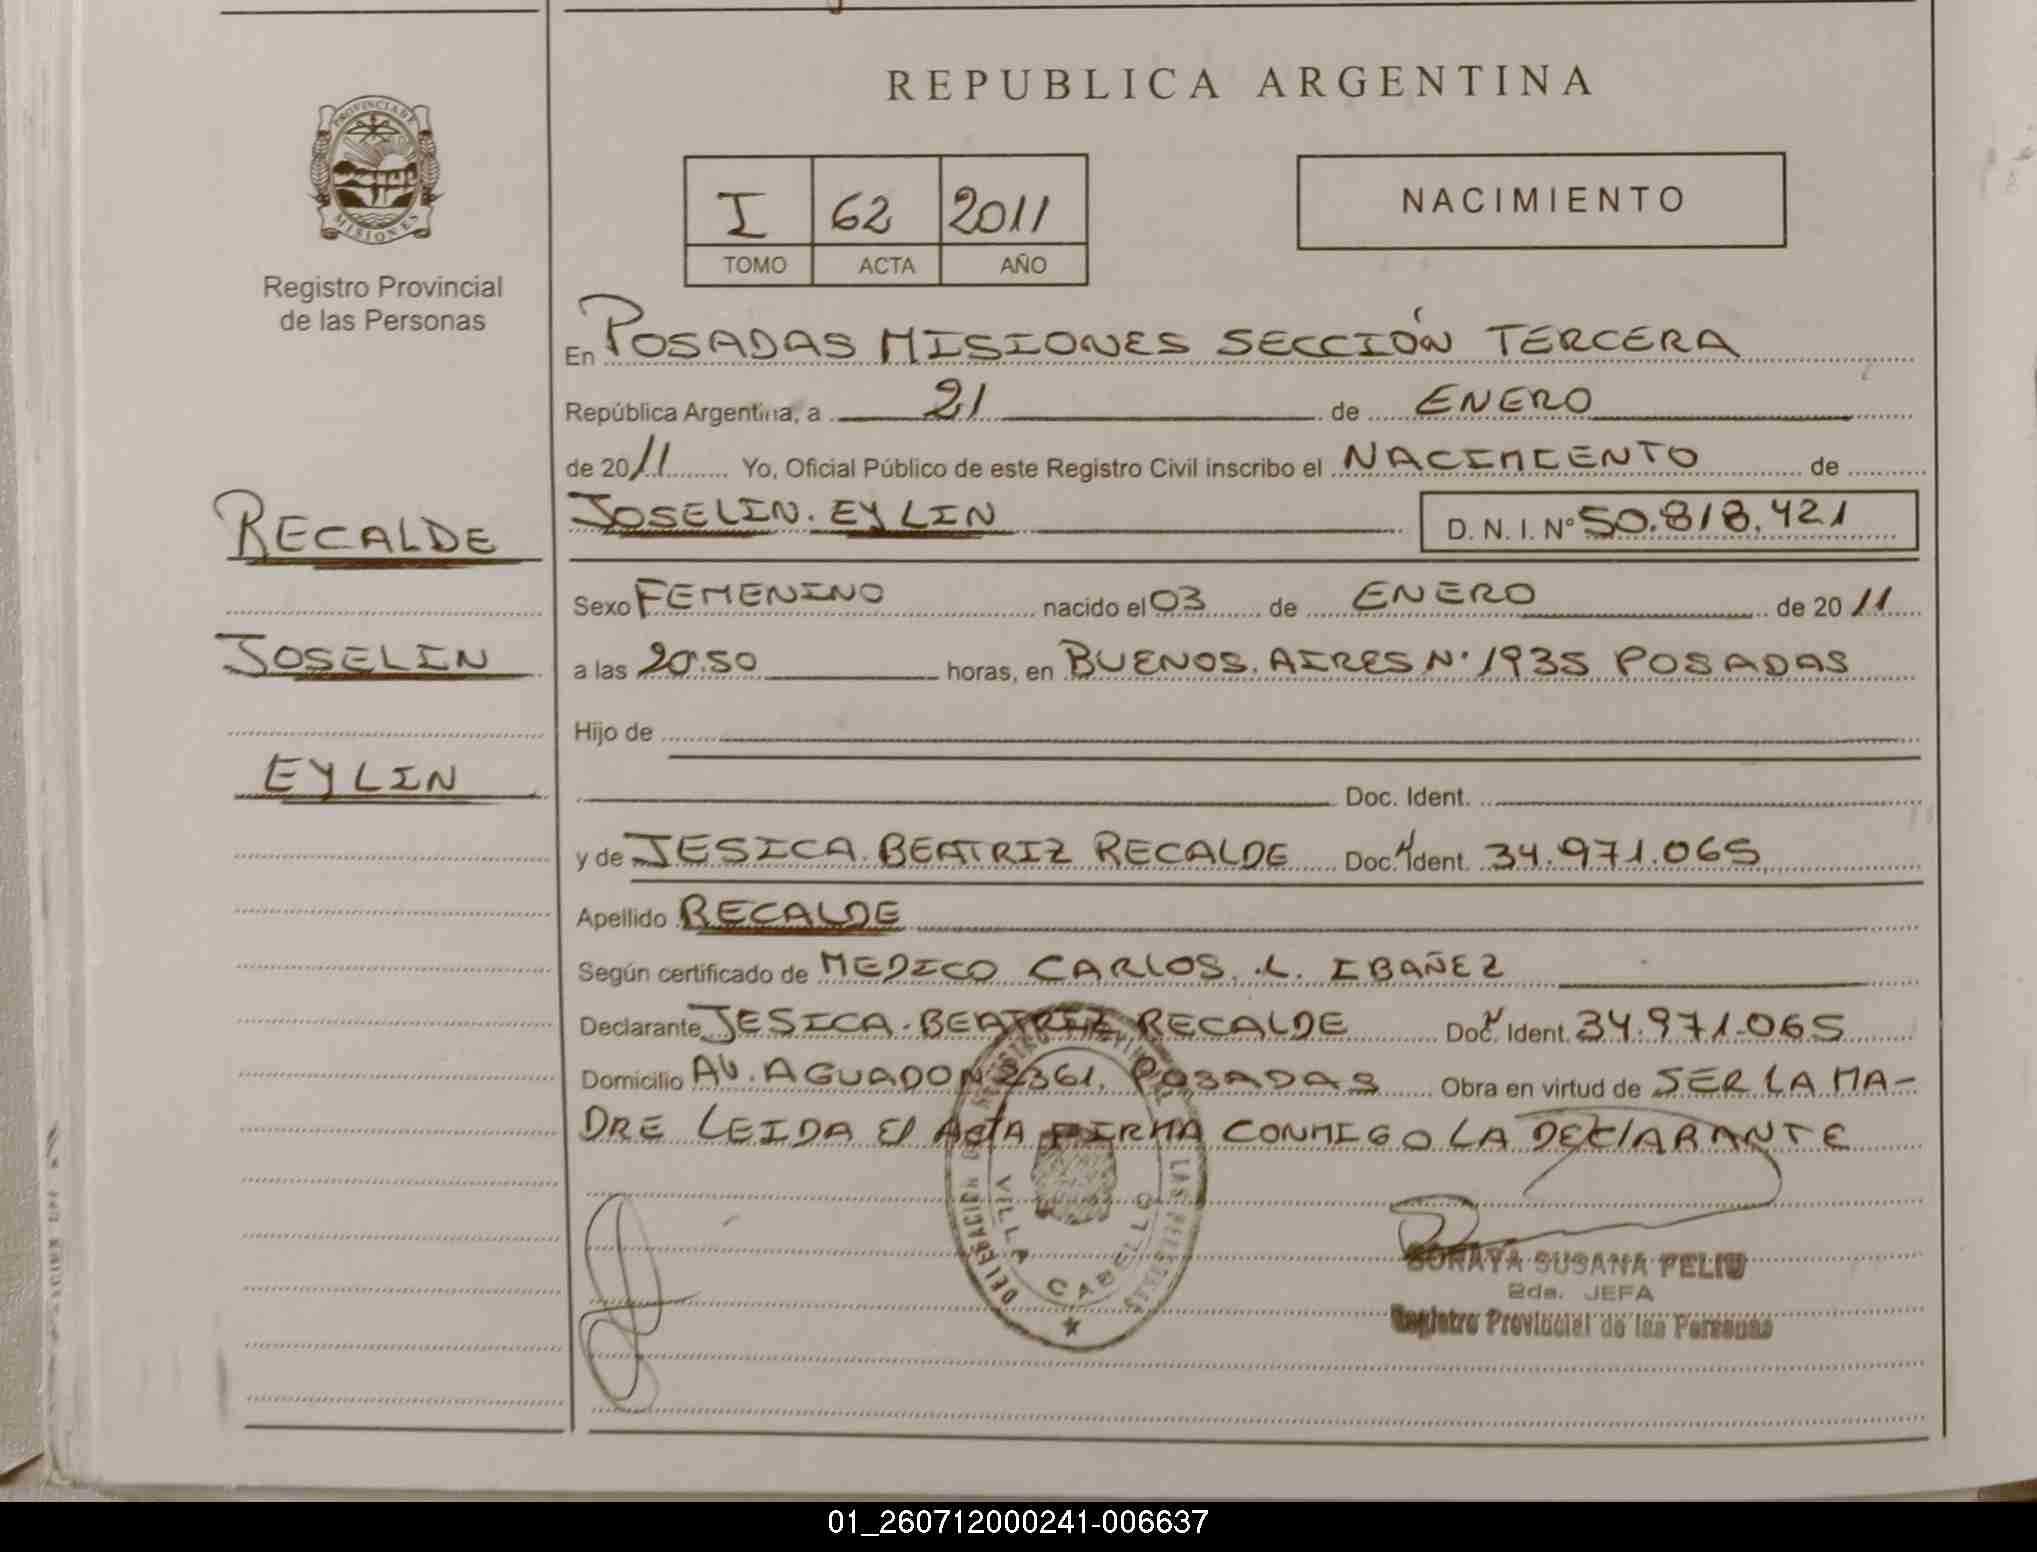 REPUBLICA ARGENTINA
PROVINCIA DE
MISIONES
Registro Provincial
de las Personas
I 62 2011
TOMO ACTA AÑO
NACIMIENTO
En POSADAS MISIONES SECCIÓN TERCERA
República Argentina, a 21 de ENERO
de 2011 Yo, Oficial Público de este Registro Civil inscribo el NACIMIENTO de
RECALDE
JOSELIN. EYLIN D. N. I. Nº 50.818.421
Sexo FEMENINO nacido el 03 de ENERO de 2011
JOSELIN
a las 20.50 horas, en BUENOS. AIRES Nº 1935 POSADAS
Hijo de
EYLIN
Doc. Ident.
y de JESICA. BEATRIZ RECALDE Doc. Ident. 34.971.065
Apellido RECALDE
Según certificado de MEDICO CARLOS. L. IBAÑEZ
Declarante JESICA. BEATRIZ RECALDE Doc. Ident. 34.971.065
Domicilio AV. AGUADO N 2361. POSADAS Obra en virtud de SER LA MA-
DRE LEIDA El ActA FIRMA CONMIGO LA DEClARANTE
DELEGACION
LAS PERSONAS
VILLA CABELLO
SORAYA SUSANA FELIU
2da. JEFA
Registro Provincial de las Personas
01_260712000241-006637